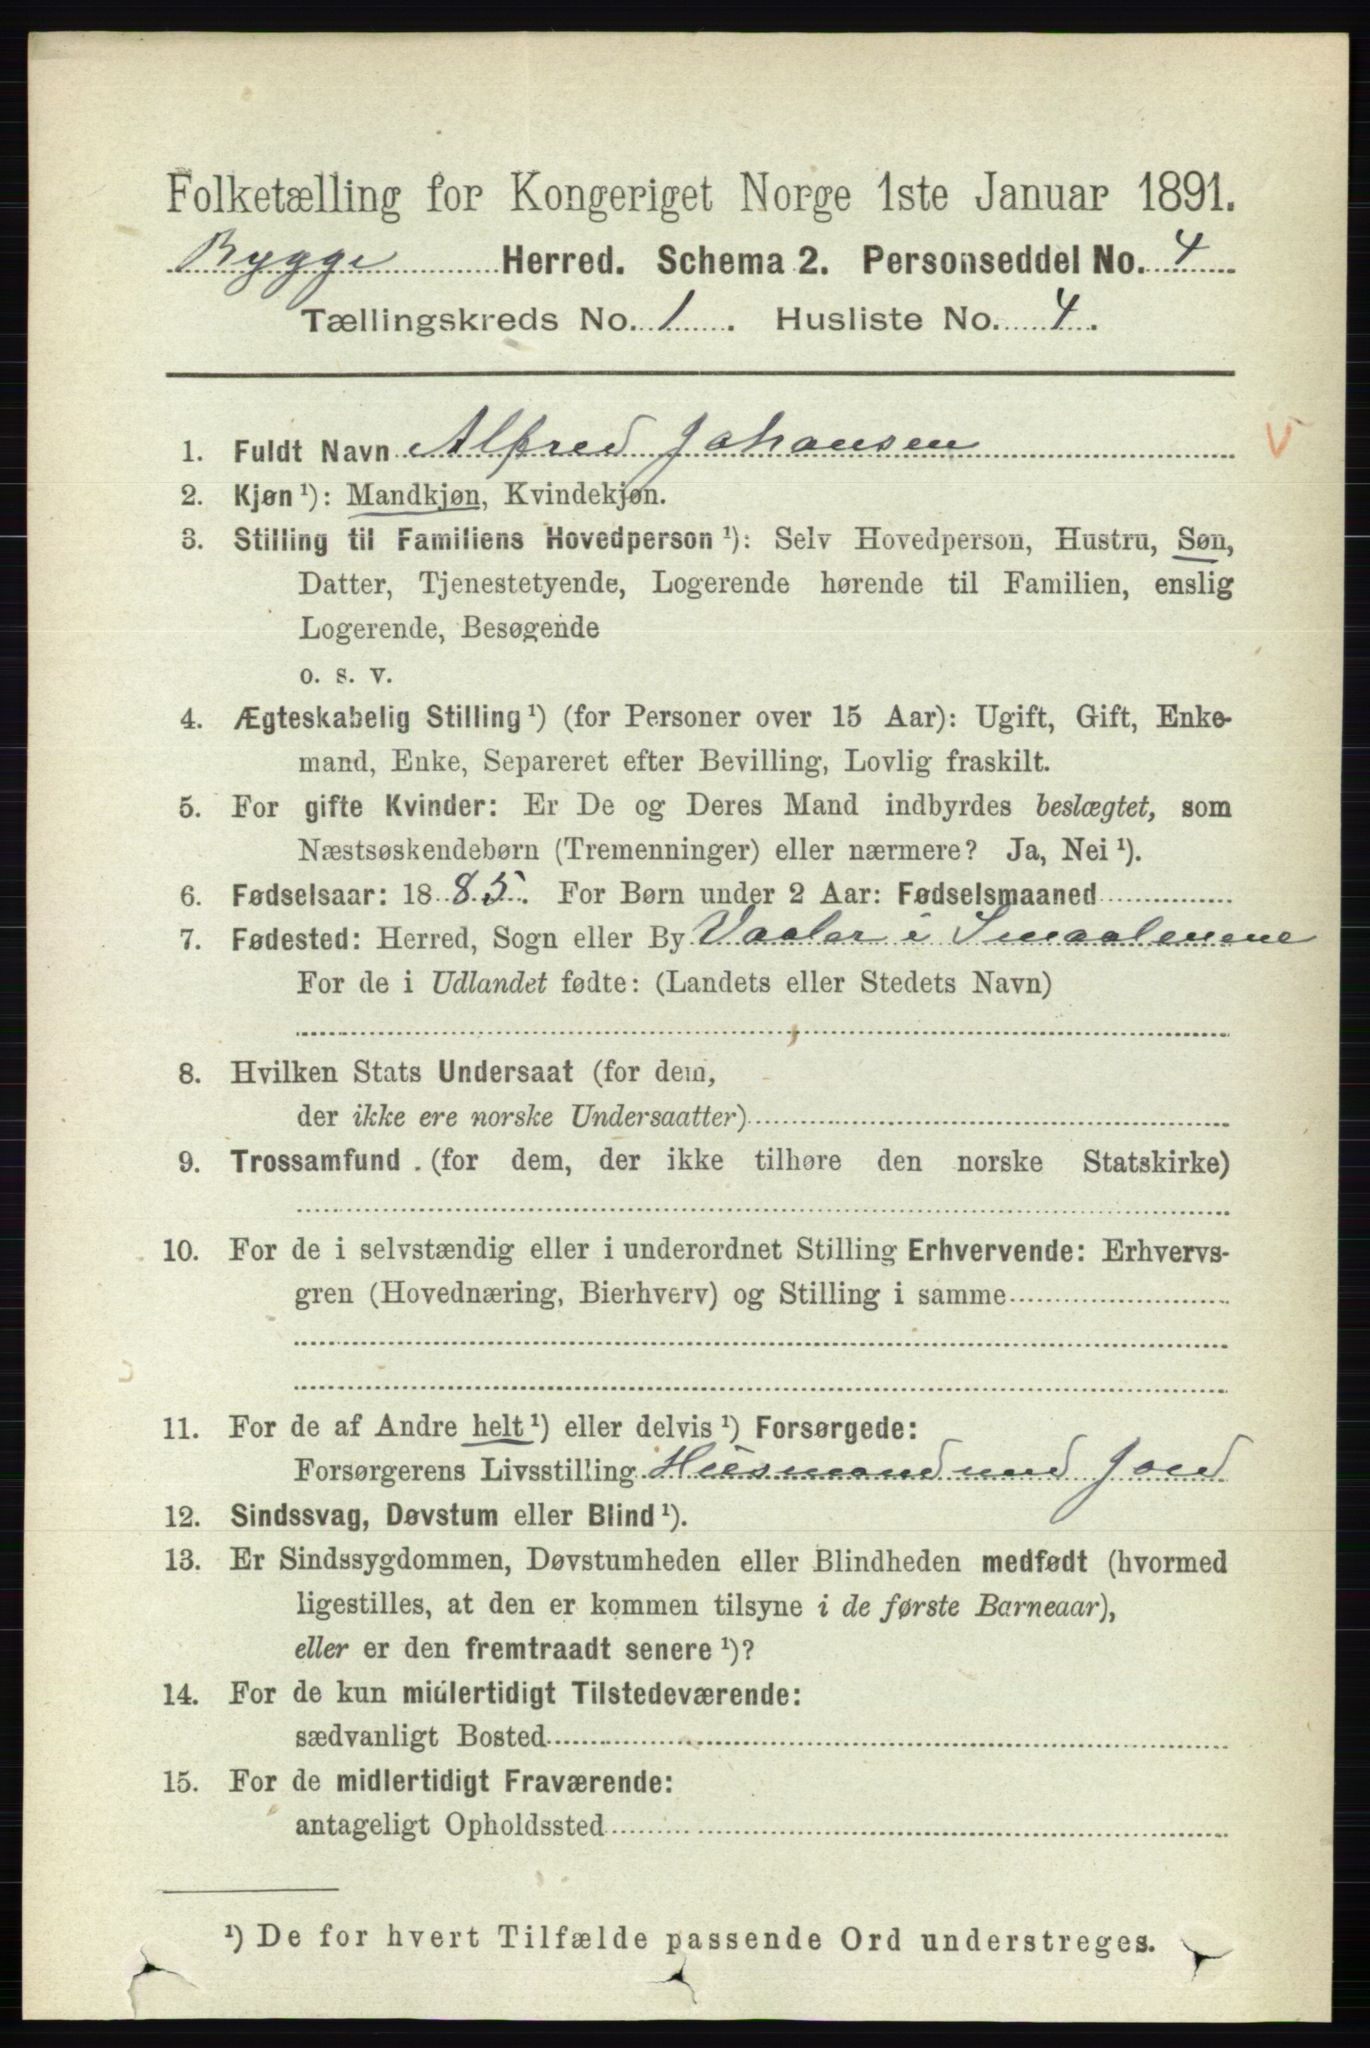 Folketælling for Kongeriget Norge 1ste Januar 1891.
Rygge Herred. Schema 2. Personseddel No. 4
Tællingskreds No. 1. Husliste No. 4.
1. Fuldt Navn Alfred Johansen
2. Kjøn ¹): Mandkjøn, Kvindekjøn.
3. Stilling til Familiens Hovedperson ¹): Selv Hovedperson, Hustru, Søn,
Datter, Tjenestetyende, Logerende hørende til Familien, enslig
Logerende, Besøgende
o. s. v.
4. Ægteskabelig Stilling ¹) (for Personer over 15 Aar): Ugift, Gift, Enke-
mand, Enke, Separeret efter Bevilling, Lovlig fraskilt.
5. For gifte Kvinder: Er De og Deres Mand indbyrdes beslægtet, som
Næstsøskendebørn (Tremenninger) eller nærmere? Ja, Nei ¹).
6. Fødselsaar: 1885. For Børn under 2 Aar: Fødselsmaaned
7. Fødested: Herred, Sogn eller By Vaaler i Smaalenene
For de i Udlandet fødte: (Landets eller Stedets Navn)
8. Hvilken Stats Undersaat (for dem,
der ikke ere norske Undersaatter)
9. Trossamfund . (for dem, der ikke tilhøre den norske Statskirke)
10. For de i selvstændig eller i underordnet Stilling Erhvervende: Erhvervs-
gren (Hovednæring, Bierhverv) og Stilling i samme
11. For de af Andre helt ¹) eller delvis ¹) Forsørgede:
Forsørgerens Livsstilling Husmand med Jord
12. Sindssvag, Døvstum eller Blind ¹).
13. Er Sindssygdommen, Døvstumheden eller Blindheden medfødt (hvormed
ligestilles, at den er kommen tilsyne i de første Barneaar),
eller er den fremtraadt senere ¹)?
14. For de kun midlertidigt Tilstedeværende:
sædvanligt Bosted
15. For de midlertidigt Fraværende:
antageligt Opholdssted
¹) De for hvert Tilfælde passende Ord understreges.